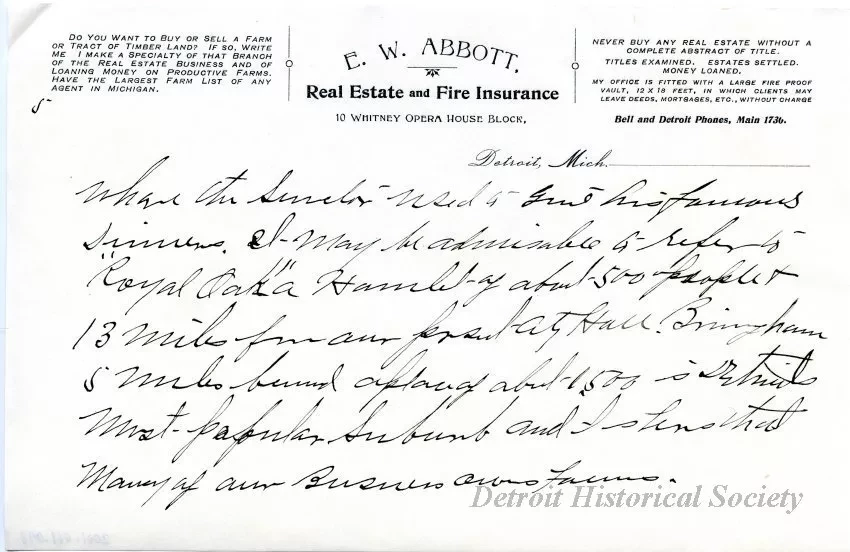 DO YOU WANT TO BUY OR SELL A FARM
OR TRACT OF TIMBER LAND? IF SO, WRITE
ME. I MAKE A SPECIALTY OF THAT BRANCH
OF THE REAL ESTATE BUSINESS AND OF
LOANING MONEY ON PRODUCTIVE FARMS.
HAVE THE LARGEST FARM LIST OF ANY
AGENT IN MICHIGAN.
E. W. ABBOTT,
Real Estate and Fire Insurance
10 WHITNEY OPERA HOUSE BLOCK,
NEVER BUY ANY REAL ESTATE WITHOUT A
COMPLETE ABSTRACT OF TITLE.
TITLES EXAMINED. ESTATES SETTLED.
MONEY LOANED.
MY OFFICE IS FITTED WITH A LARGE FIRE PROOF
VAULT, 12 X 18 FEET, IN WHICH CLIENTS MAY
LEAVE DEEDS, MORTGAGES, ETC., WITHOUT CHARGE
Bell and Detroit Phones, Main 1736.
5
Detroit, Mich.
where the Senator used to give his famous
Dinners. It may be admisable to refer to
"Royal Oak" a Hamlet of about 500 people &
13 miles from our City Hall. Bringham
5 miles about 1500 is Detroits
Most popular Suburb and I that
Many of our Business own Farms.
Detroit Historical Society